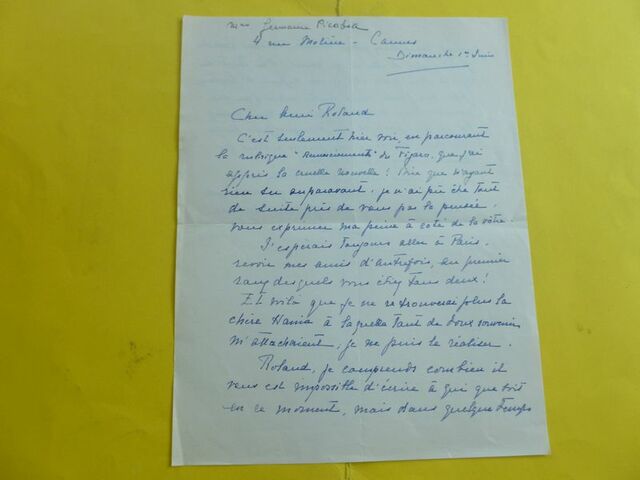 Mme Germaine Picabia
4 rue Molière - Cannes
Dimanche 1er Juin
Cher Ami Roland
C'est seulement hier soir, en parcourant
la rubrique "Remerciements" du Figaro, que j'ai
appris la cruelle nouvelle! Dire que n'ayant
rien su auparavant, je n'ai pu être tout
de suite près de vous par la pensée,
vous exprimer ma peine à coté de la vôtre.
J'espérais toujours aller à Paris,
revoir mes amis d'autrefois, au premier
rang desquels vous étiez tous deux!
Et voilà que je ne retrouverai plus la
chère Hania à laquelle tant de doux souvenirs
m'attachaient, je ne puis le réaliser.
Roland, je comprends combien il
vous est impossible d'écrire à qui que soit
en ce moment, mais dans quelque temps